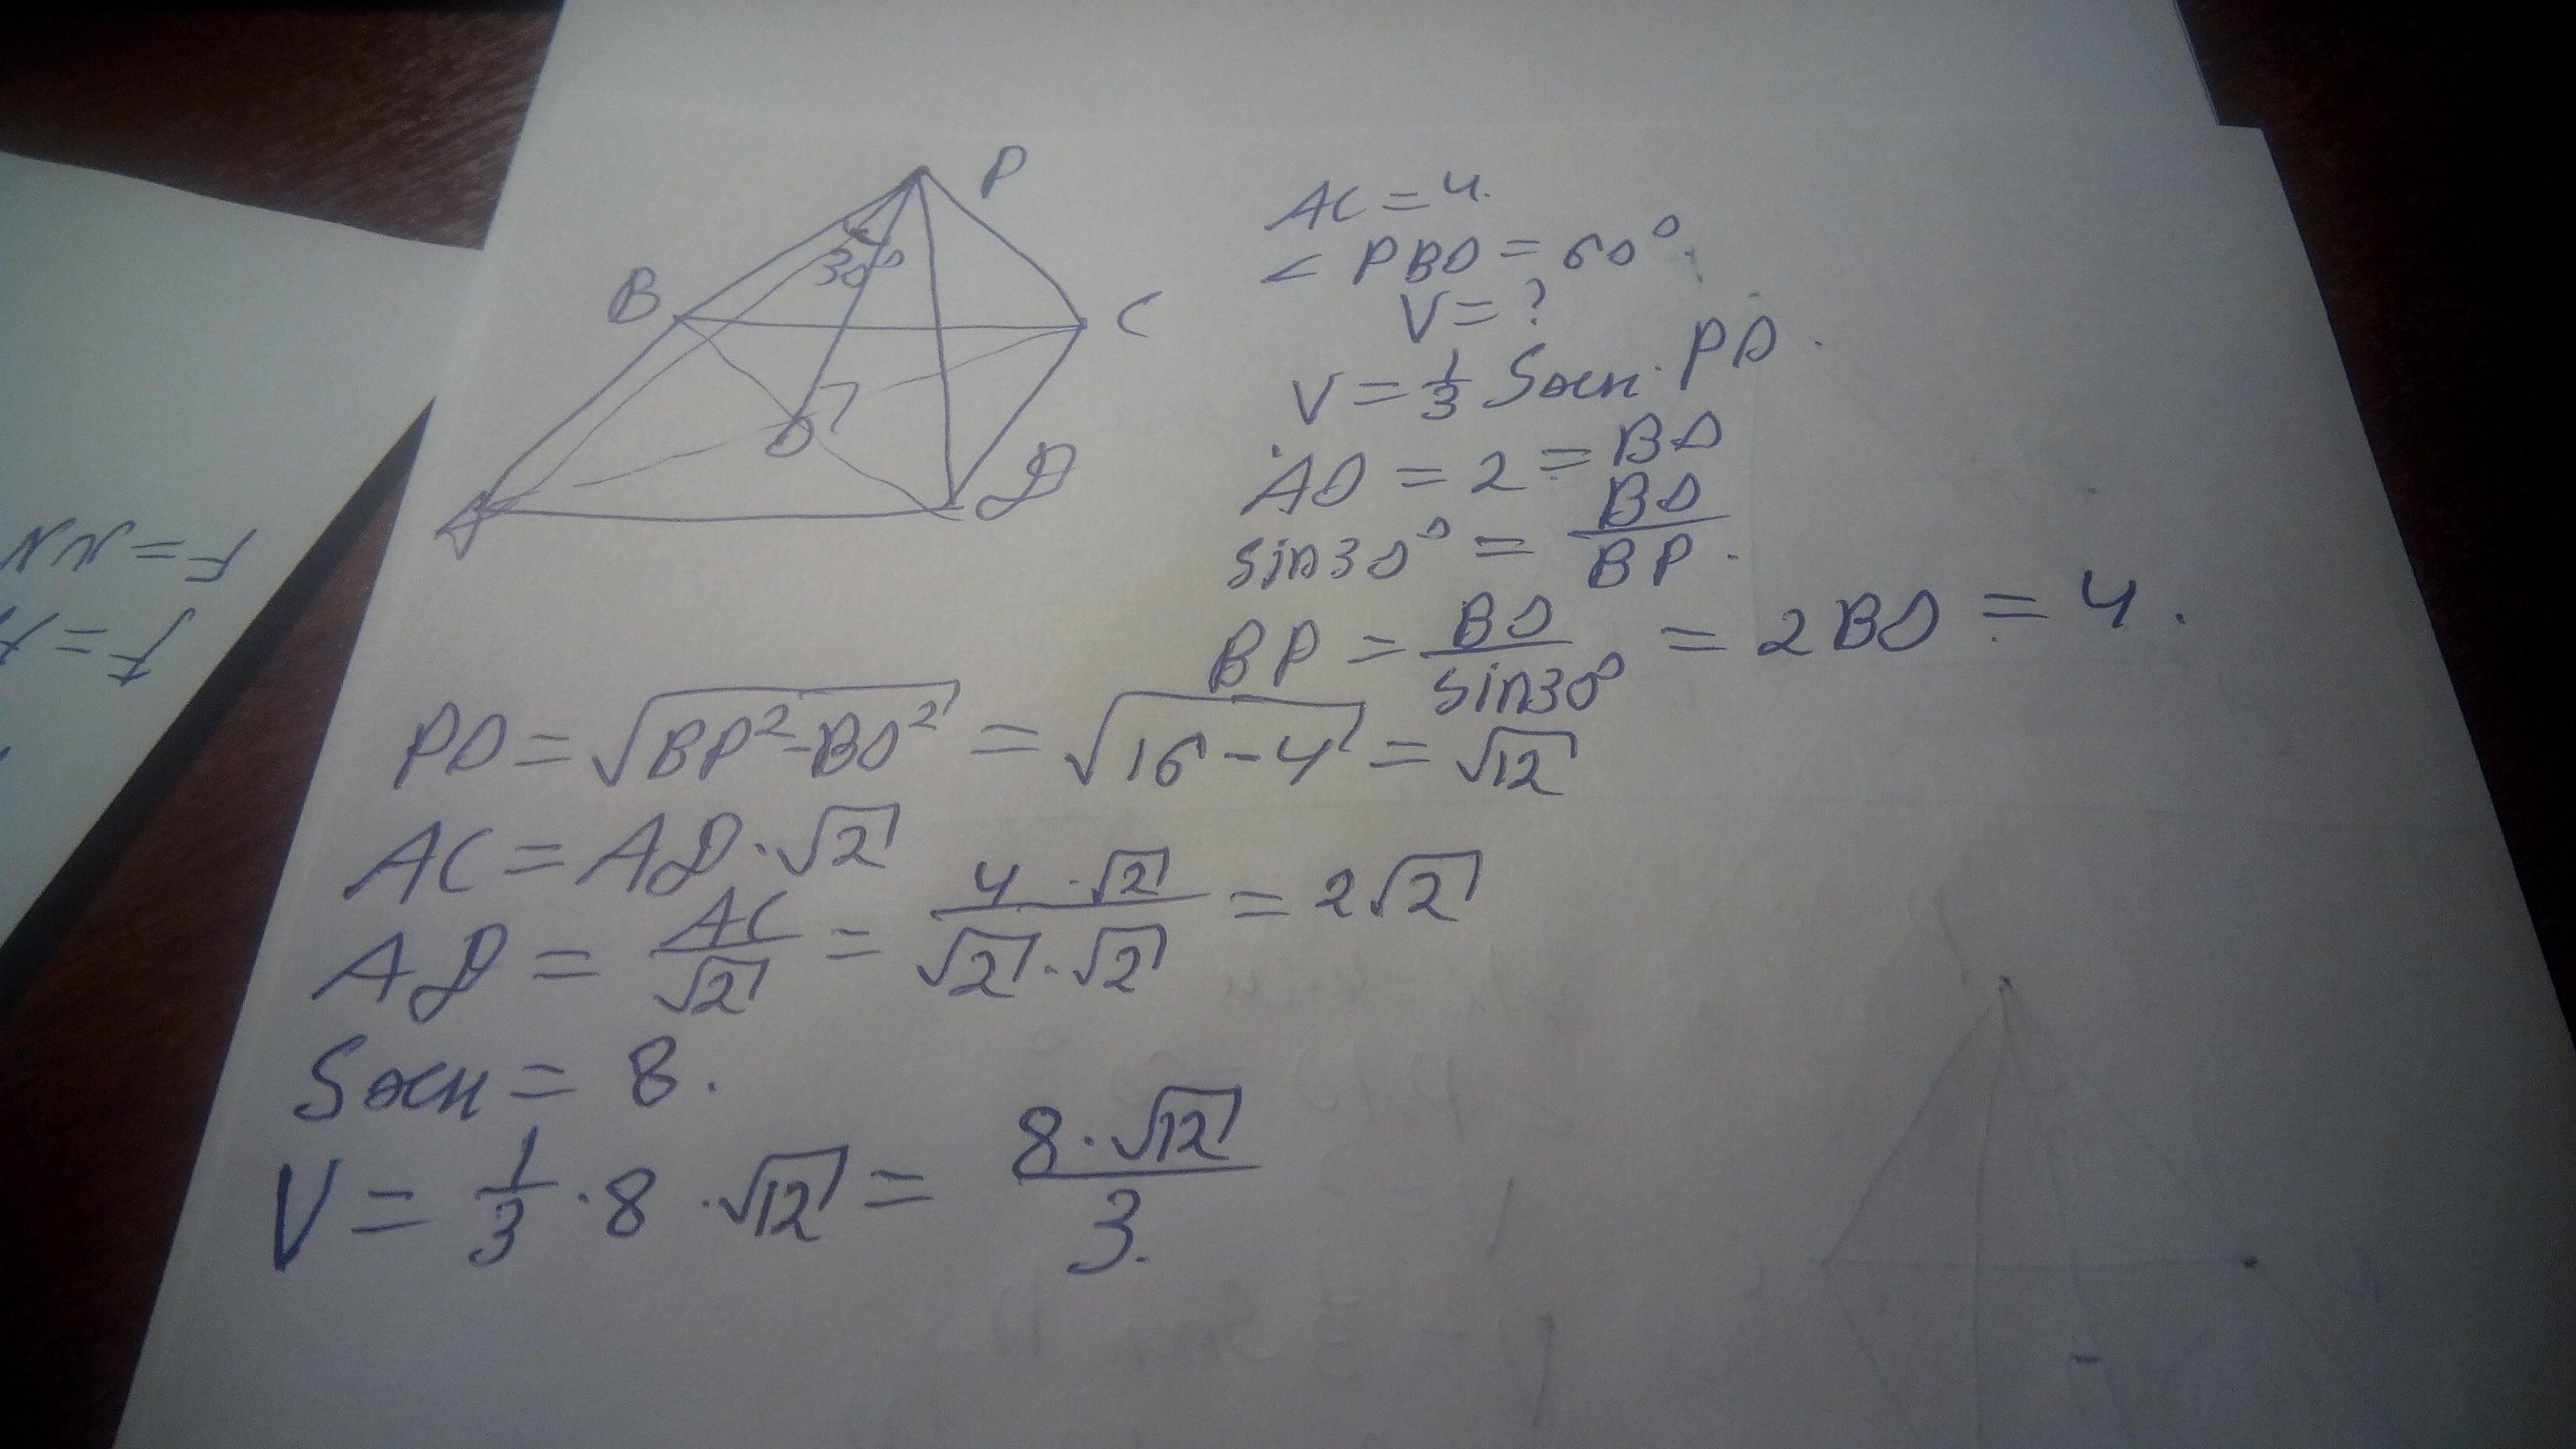 P
30°
B
C
O
A
D
AC = 4.
< PBO = 60°
V = ?
V = 1/3 Sосн. PO
AO = 2 = BO
sin30° = BO/BP.
BP = BO/sin30° = 2BO = 4.
PO = √(BP² - BO²) = √(16 - 4) = √12
AC = AD · √2
AD = AC/√2 = (4 · √2)/(√2 · √2) = 2√2
Sосн = 8.
V = 1/3 · 8 · √12 = (8 · √12)/3.